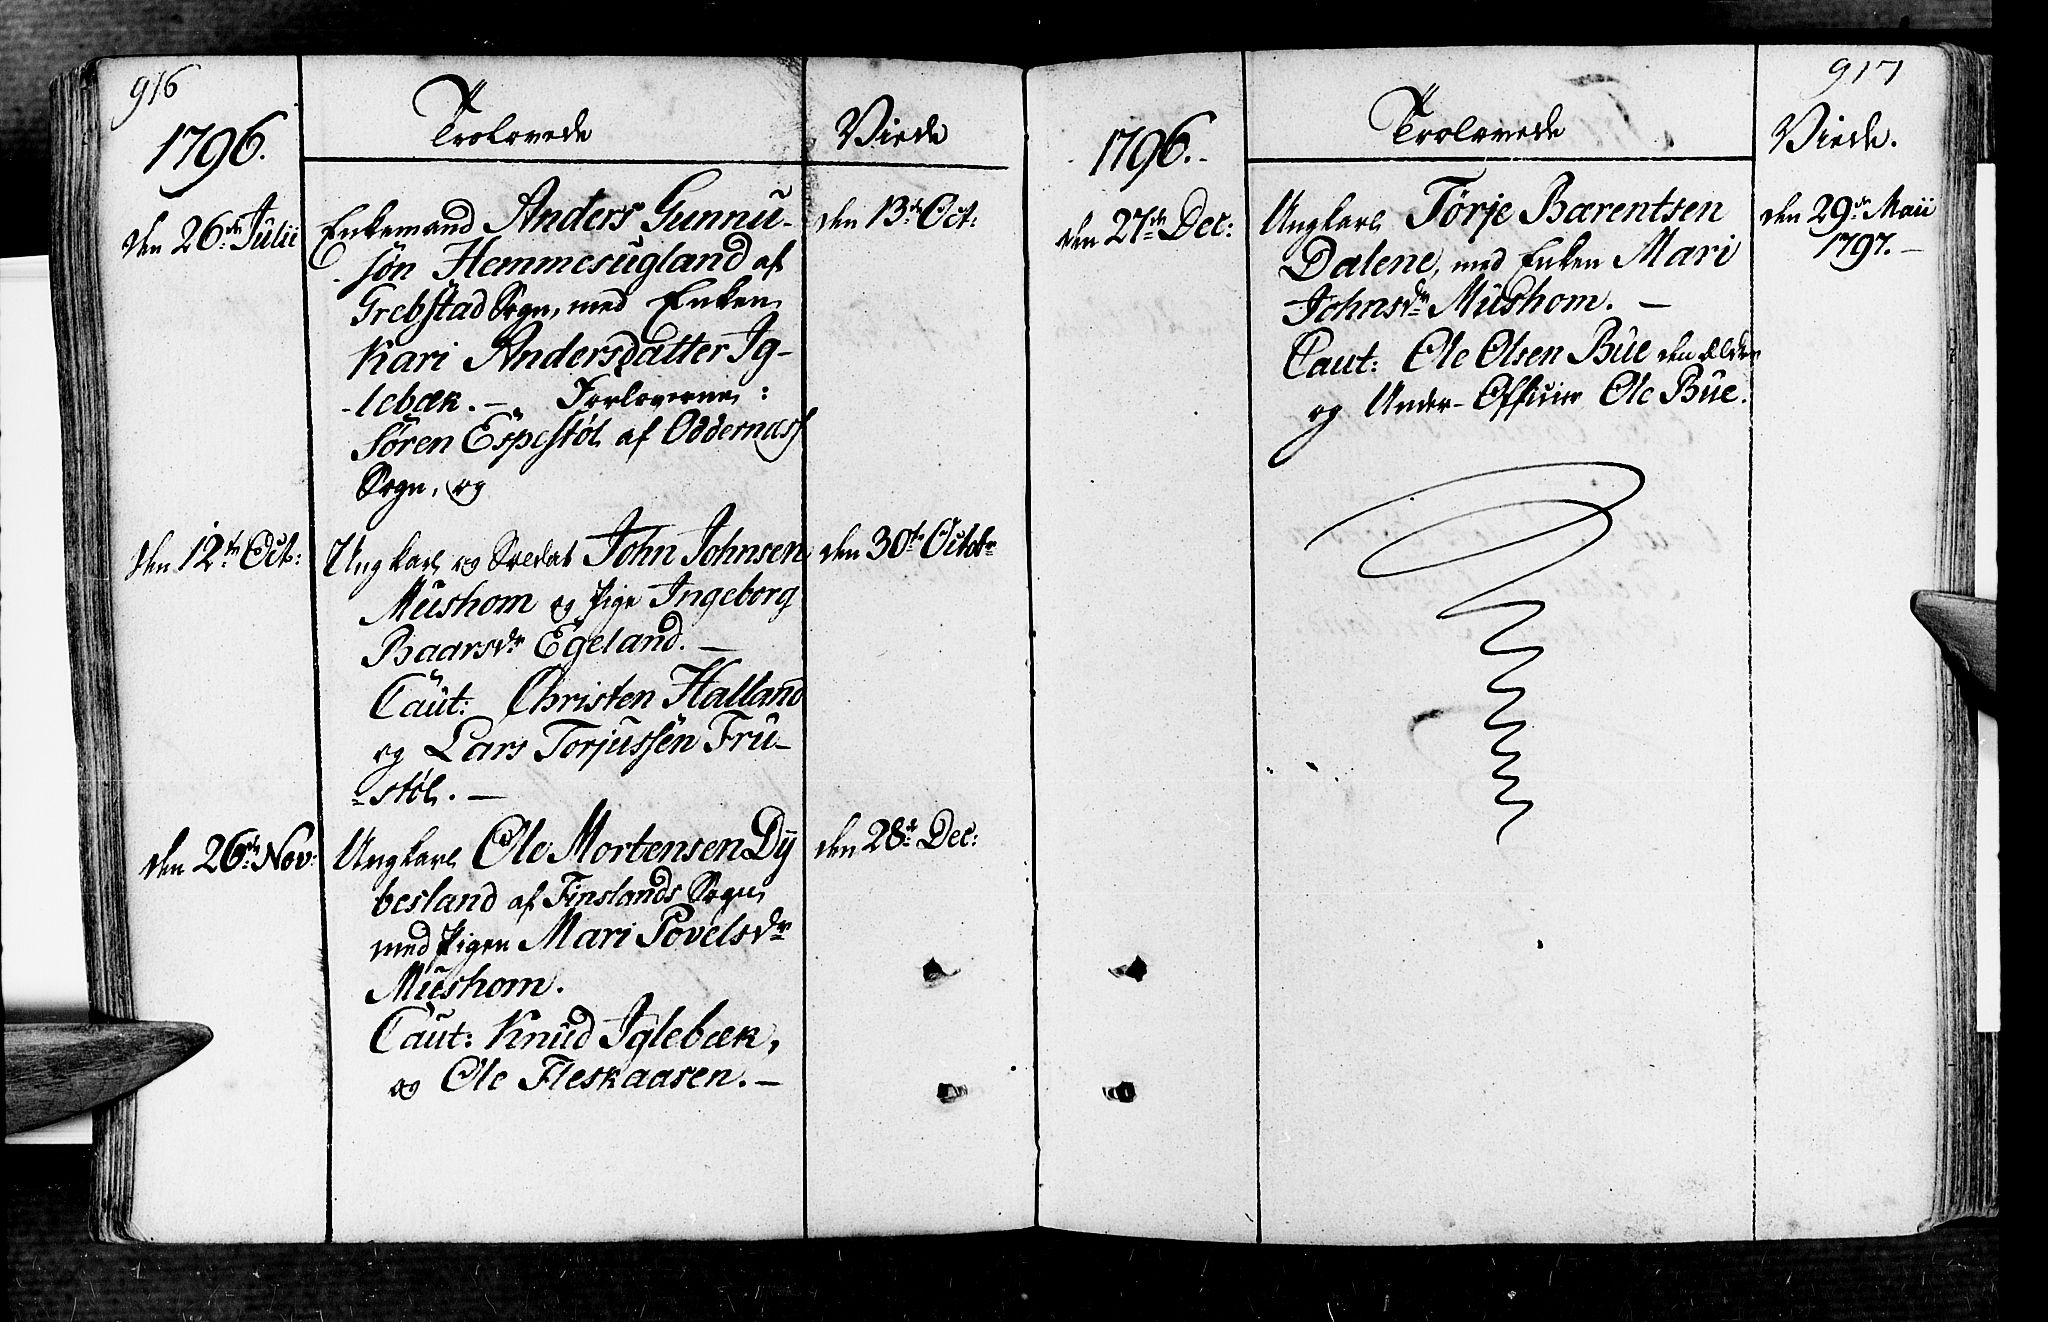 916
1796.
Trolovede
Viede
den 26de Julii
Enkemand Anders Gunnu-
søn Hemmesugland af
Grebstad Sogn, med Enken
Kari Andersdatter Ig-
-lebæk. - Forloverne:
Søren Espestøl af Oddernæss
Sogn, og
den 13de Oct:
den 12te Oct:
Ungkarl og Soldat John Johnsen
Mushom og Pige Ingeborg
Baarsdr Egeland. -
Caut: Christen Halland
og Lars Torjussen Fru-
-støl. -
den 30te Octobr
den 26de Nov:
Ungkarl Ole Mortensen Dy
besland af Finslands Sogn
med Pigen Mari Povelsdr
Mushom.
Caut: Knud Iglebæk,
og Ole Fleskaasen. -
den 28de Dec:
917
1796.-
Trolovede
Viede.
den 27de Dec:
Ungkarl Tørje Bærentsen
Dalene, med Enken Mari
Johnsdr Mushom. -
Caut: Ole Olsen Bue den ældre
og Under-Officier Ole Bue.
den 29de Maii
1797. -